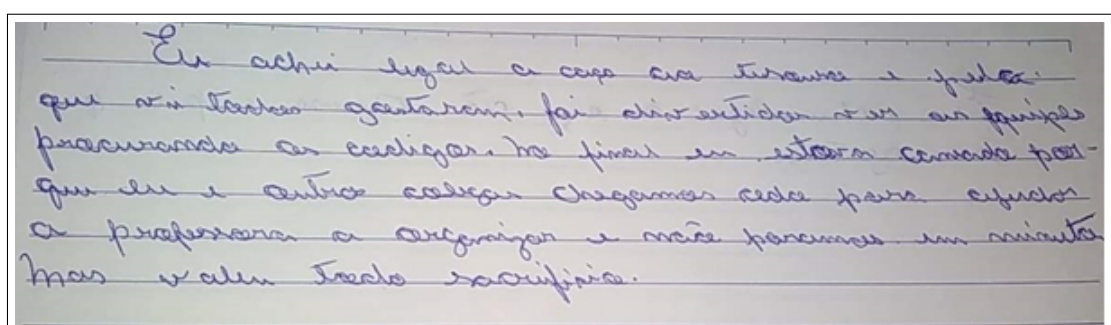 Eu achei legal a caça ao tesouro e pelo
que vi todos gostaram, foi divertido ver as equipes
procurando os codigos. No final eu estava cansada por-
que eu e outros colegas chegamos cedo para ajudar
a professora a organizar e não paramos um minuto
mas valeu todo sacrificio.